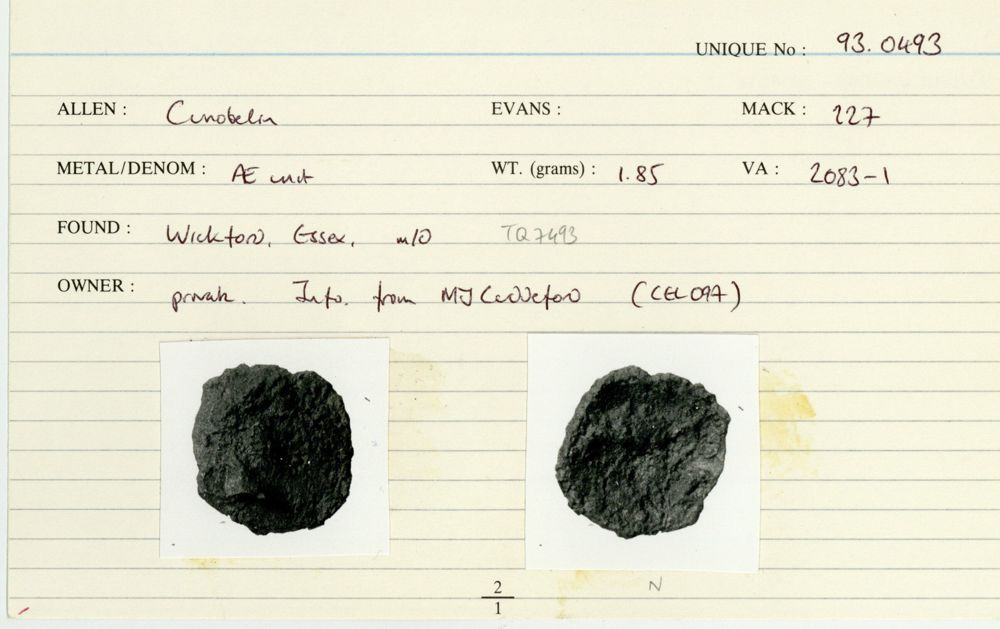 UNIQUE No : 93.0493
ALLEN : Cunobelin EVANS : MACK : 227
METAL/DENOM : Æ unit WT. (grams) : 1.85 VA : 2083-1
FOUND : Wickford, Essex, m/d TQ7493
OWNER : private. Info. from MJ Cuddeford (CEL097)
2
1
N